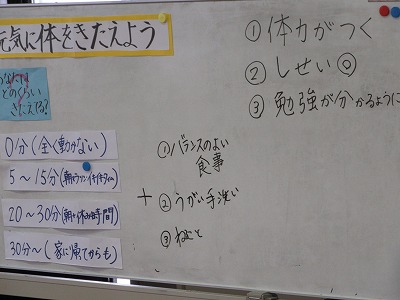 元気に体をきたえよう
どのくらい
きたえる?
0分(全く動かない)
5〜15分(朝のマラソン・体作タイム)
20〜30分(朝・休み時間)
30分〜(家に帰ってからも)
①バランスのよい
食事
+ ②うがい手洗い
③ねること
①体力がつく
②しせい◎
③勉強が分かるように